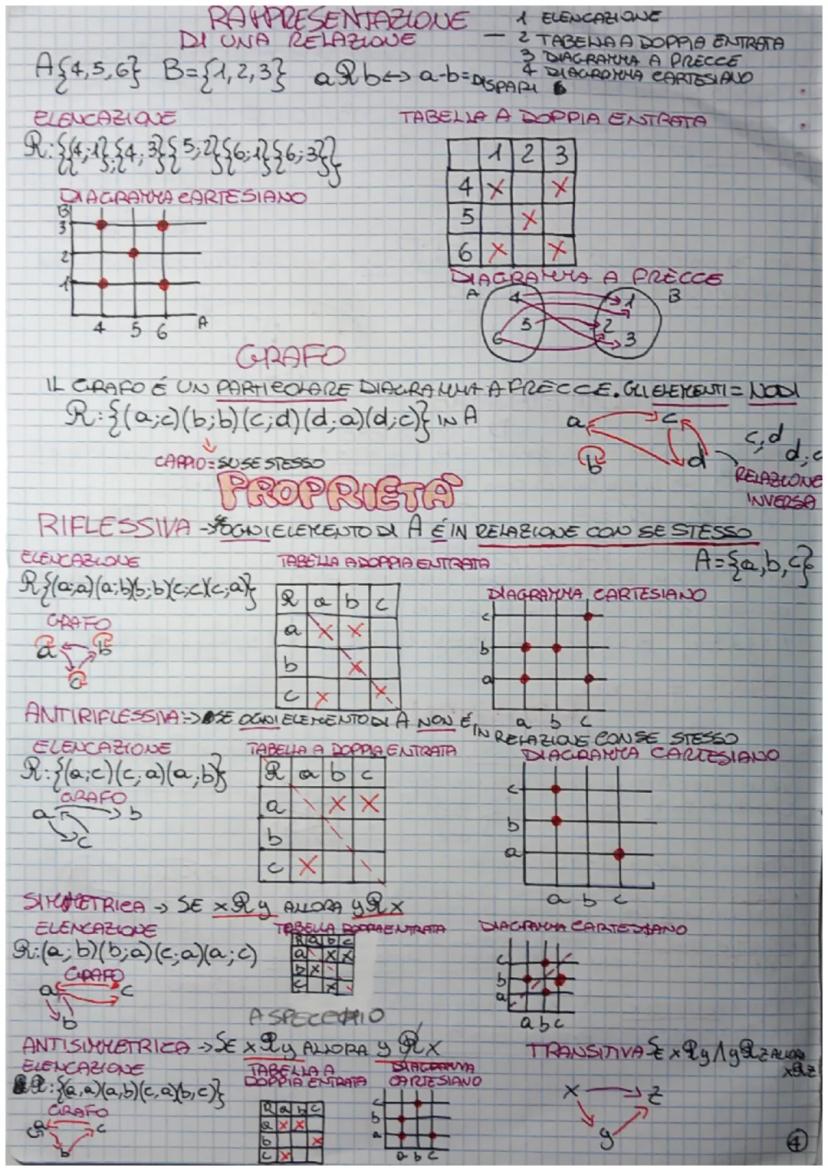 RAPPRESENTAZIONE
DI UNA RELAZIONE
1 ELENCAZIONE
2 TABELLA A DOPPIA ENTRATA
3 DIAGRAMMA A FRECCE
4 DIAGRAMMA CARTESIANO
A{4,5,6} B={1,2,3} aRb↔a-b=DISPARI
ELENCAZIONE
R:{{4;1};{4,3}{5;2}{6;1}{6;3}}
TABELLA A DOPPIA ENTRATA
1 2 3
4 X X
5 X
6 X X
DIAGRAMMA CARTESIANO
B
3
2
1
4 5 6 A
DIAGRAMMA A FRECCE
A B
4 1
5 2
6 3
GRAFO
IL GRAFO É UN PARTICOLARE DIAGRAMMA A FRECCE. GLI ELEMENTI = NODI
R:{(a;c)(b;b)(c;d)(d;a)(d;c)} IN A
CAPPIO=SU SE STESSO
a c
b d
c,d
d;c
RELAZIONE
INVERSA
PROPRIETÀ
RIFLESSIVA → OGNI ELEMENTO DI A É IN RELAZIONE CON SE STESSO
A={a,b,c}
ELENCAZIONE
R{(a;a)(a;b)(b;b)(c;c)(c;a)}
GRAFO
a b
c
TABELLA A DOPPIA ENTRATA
R a b c
a X X
b X
c X X
DIAGRAMMA CARTESIANO
c
b
a
a b c
ANTIRIFLESSIVA → SE OGNI ELEMENTO DI A NON É IN RELAZIONE CON SE STESSO
ELENCAZIONE
R:{(a;c)(c,a)(a;b)}
GRAFO
a b
c
TABELLA A DOPPIA ENTRATA
R a b c
a X X
b
c X
DIAGRAMMA CARTESIANO
c
b
a
a b c
SIMMETRICA → SE xRy ALLORA yRx
ELENCAZIONE
R:(a;b)(b;a)(c;a)(a;c)
GRAFO
a c
b
TABELLA DOPPIA ENTRATA
R a b c
a X X
b X
c X
A SPECCHIO
DIAGRAMMA CARTESIANO
c
b
a
a b c
ANTISIMMETRICA → SE xRy ALLORA y R x
ELENCAZIONE
R:{(a,a)(a,b)(c,a)(b,c)}
GRAFO
a c
b
TABELLA A
DOPPIA ENTRATA
R a b c
a X X
b X
c X
DIAGRAMMA
CARTESIANO
c
b
a
a b c
TRANSITIVA SE xRy ∧ yRz ALLORA
xRz
x z
y
4